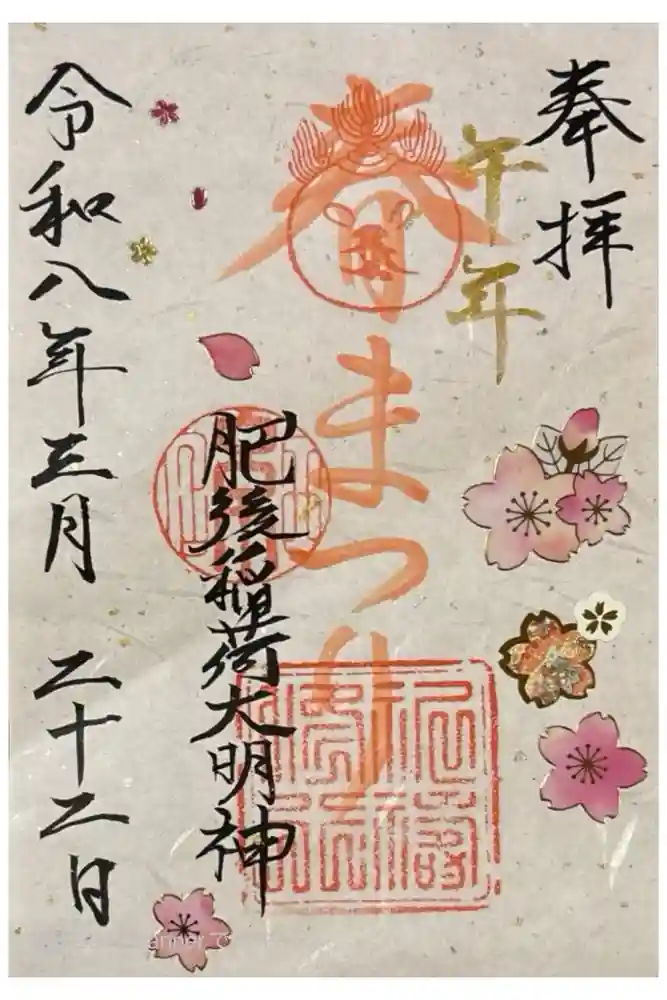 奉拝
午年
春まつり
肥後稲荷大明神
令和八年三月 二十二日